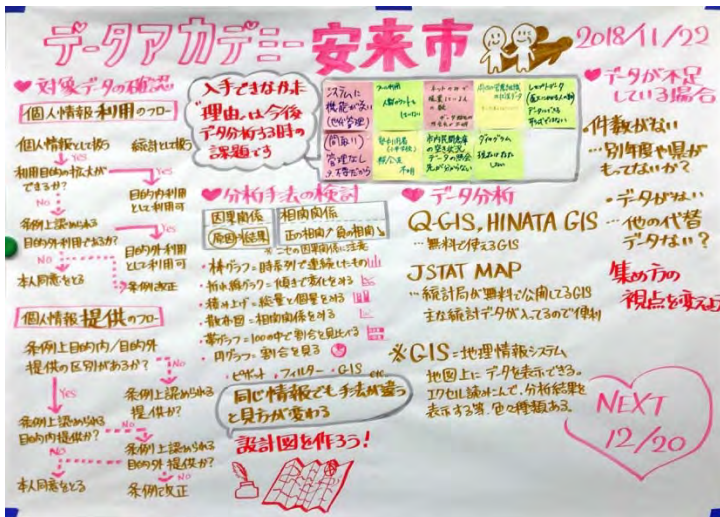 データアカデミー 安来市 2018/11/22
♥対象データの確認
個人情報利用のフロー
個人情報として扱う
統計として扱う
Yes
利用目的の拡大ができるか?
Yes
目的内利用として利用可
No
条例上認められる目的外利用であるか?
Yes
目的外利用として利用可
No
No
本人同意をとる
条例改正
個人情報提供のフロー
条例上目的内/目的外
提供の区別があるか?
No
Yes
条例上認められる
提供か?
条例上認められる
目的内提供か?
No
条例上認められる
目的外提供か?
No
No
本人同意をとる
条例改正
入手できなかった
"理由"は今後
データ分析する時の
課題です
システムに
機能がない
間取り
管理なし
不明
市内民間売家の空き状況
データの照会先が分からない
ダイヤグラム
♥分析手法の検討
因果関係
原因⇒結果
相関関係
正の相関 負の相関
※ニセの因果関係に注意
・棒グラフ=時系列で連続したもの
・折れ線グラフ=傾きで変化をみる
・積み上げ=総量と個量をみる
・散布図=相関関係をみる
・帯グラフ=100の中で割合を見比べる
・円グラフ=割合を見る
・ピボット・フィルター・GIS etc
同じ情報でも手法が違う
と見方が変わる
設計図を作ろう!
♥データ分析
Q-GIS, HINATA GIS
…無料で使えるGIS
JSTAT MAP
…統計局が無料で公開してるGIS
主な統計データが入ってるので便利
※GIS=地理情報システム
地図上にデータを表示できる。
エクセル読みこんで、分析結果を
表示する等、色々種類ある。
♥データが不足
している場合
・件数がない
…別年度や県が
もってないか?
・データがない
…他の代替
データない?
集め方の
視点を変えよう
NEXT
12/20